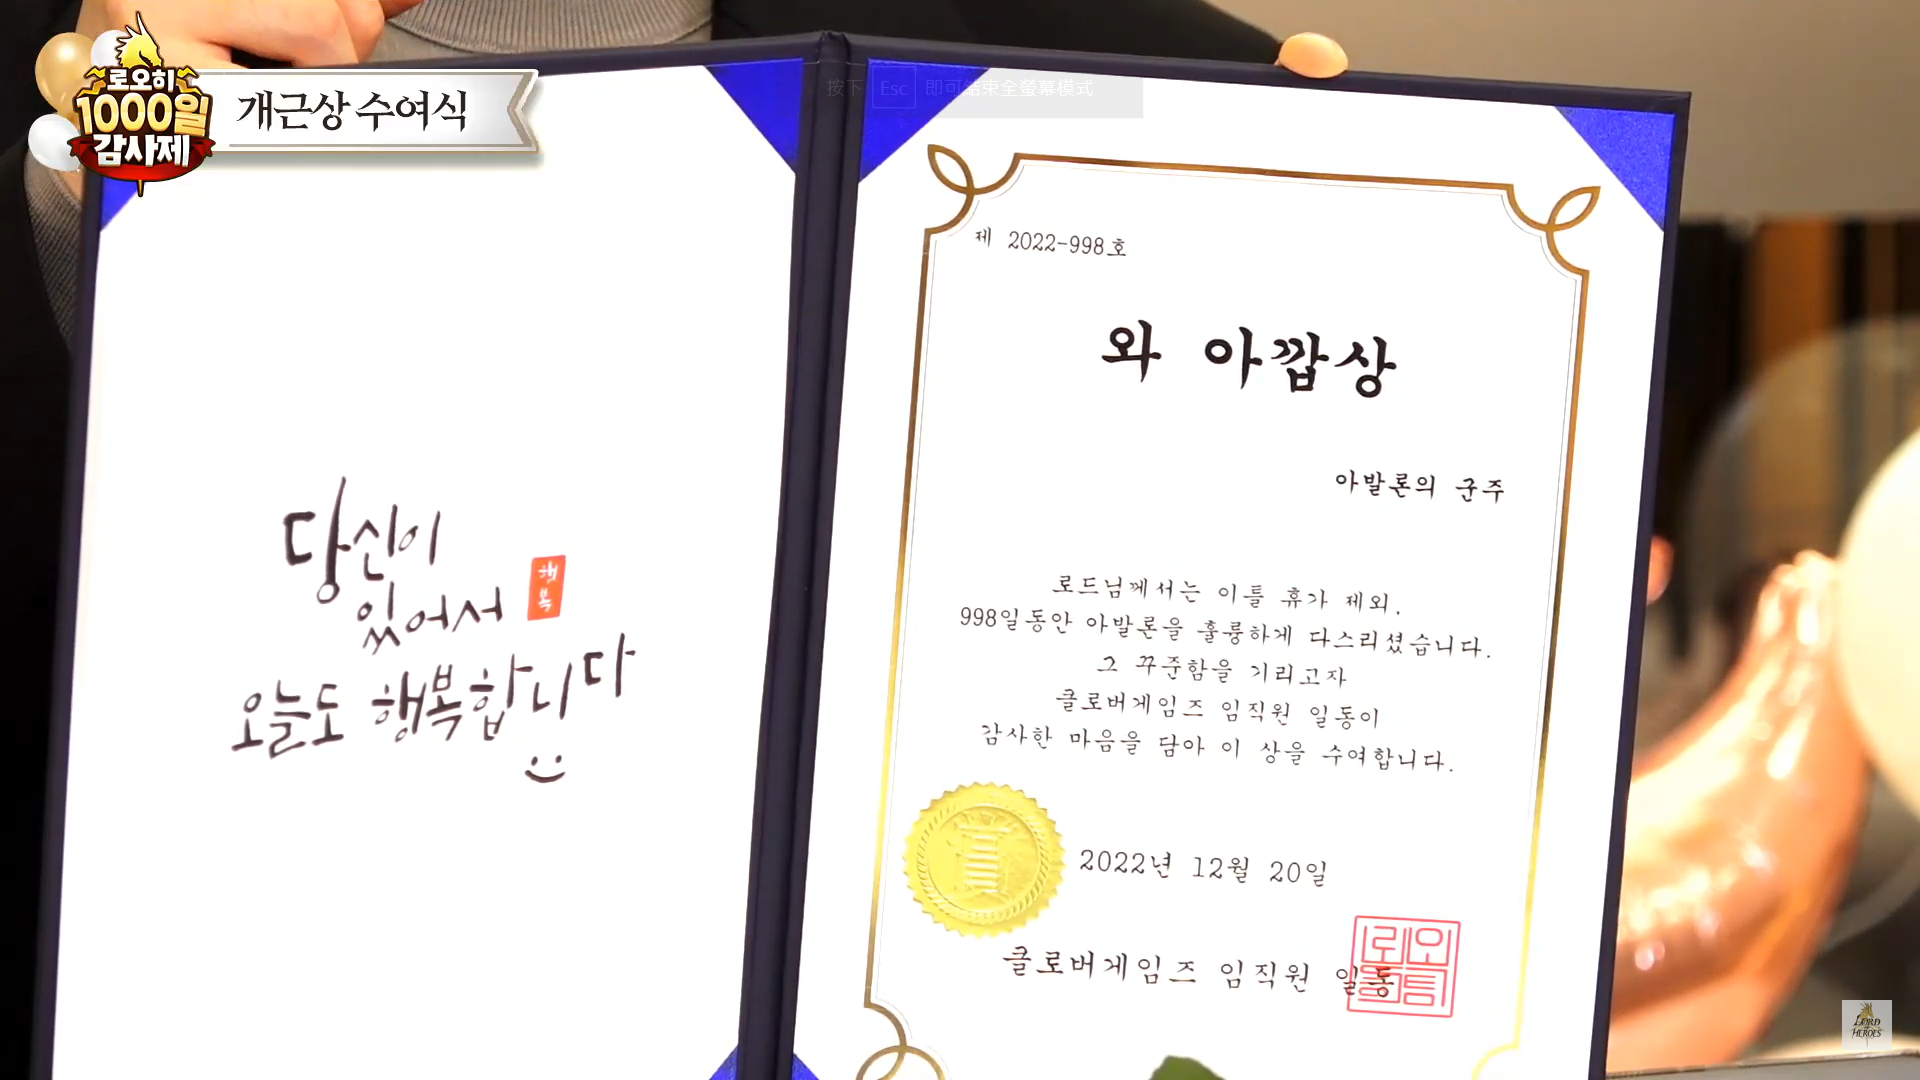 로오히
1000일
감사제
개근상 수여식
按下 Esc 即可結束全螢幕模式
당신이
있어서
행복
오늘도 행복합니다
제 2022-998호
와 아깝상
아발론의 군주
로드님께서는 이틀 휴가 제외,
998일동안 아발론을 훌륭하게 다스리셨습니다.
그 꾸준함을 기리고자
클로버게임즈 임직원 일동이
감사한 마음을 담아 이 상을 수여합니다.
2022년 12월 20일
클로버게임즈 임직원 일동
LORD
HEROES